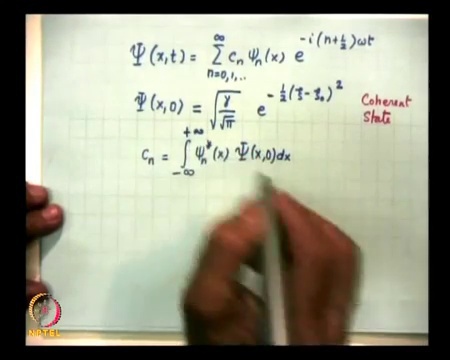 Ψ(x,t) = ∑_{n=0,1,..}^{∞} c_n ψ_n(x) e^{-i(n+1/2)ωt}
Ψ(x,0) = √(γ/√π) e^{-1/2(ξ-ξ_0)^2} Coherent State
c_n = ∫_{-∞}^{+∞} ψ_n^*(x) Ψ(x,0)dx
NPTEL